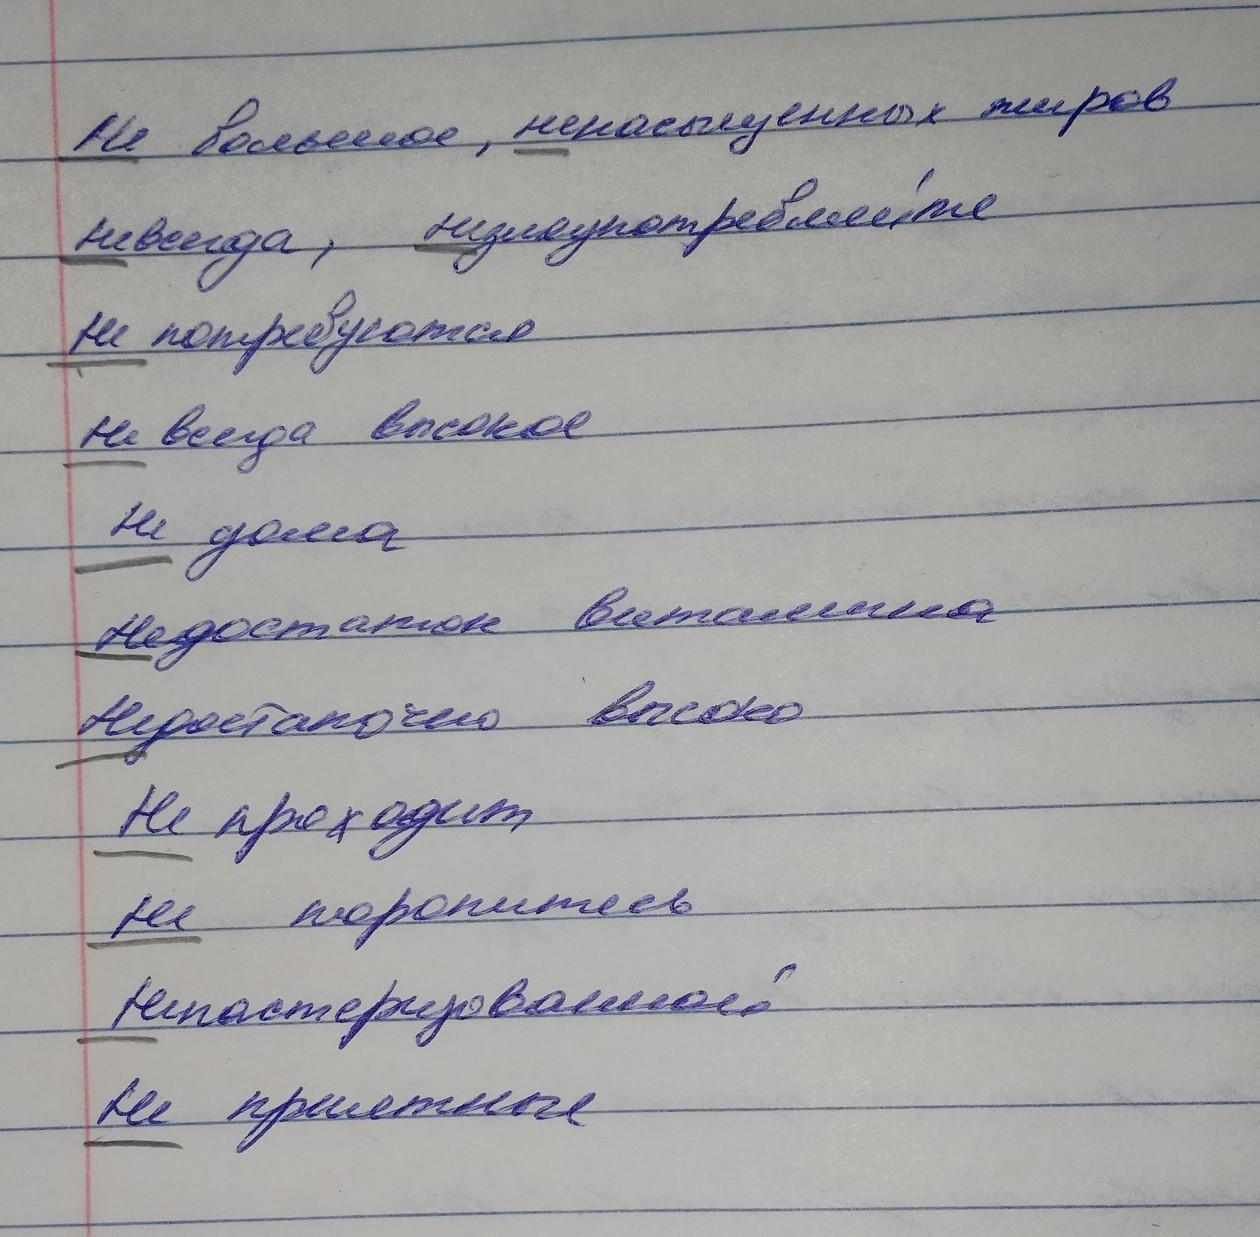 Не большое, ненасыщенных жиров
невсегда, незлоупотребляйте
Не потребуются
Не всегда высокое
Не дома
Недостаток витамина
Недостаточно высоко
Не проходит
Не торопитесь
Непастеризованной
Не приятные